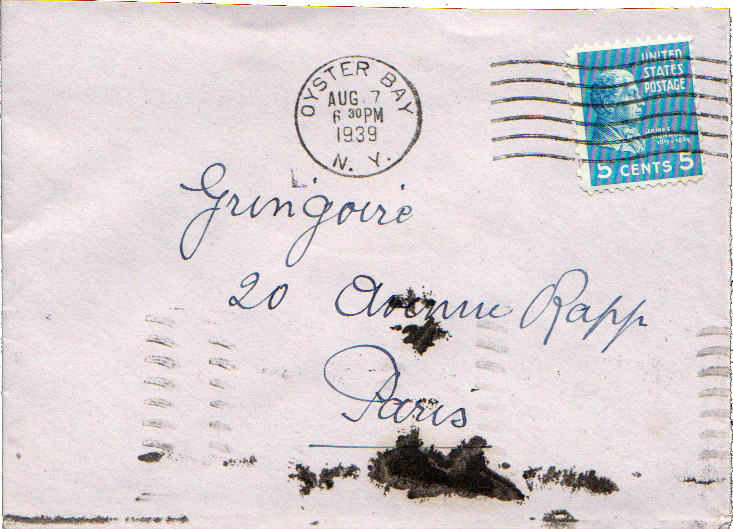 OYSTER BAY
AUG 7
6 30 PM
1939
N. Y.
UNITED
STATES
POSTAGE
JAMES
MONROE
1817-1825
5 CENTS 5
Gringoire
20 Avenue Rapp
Paris